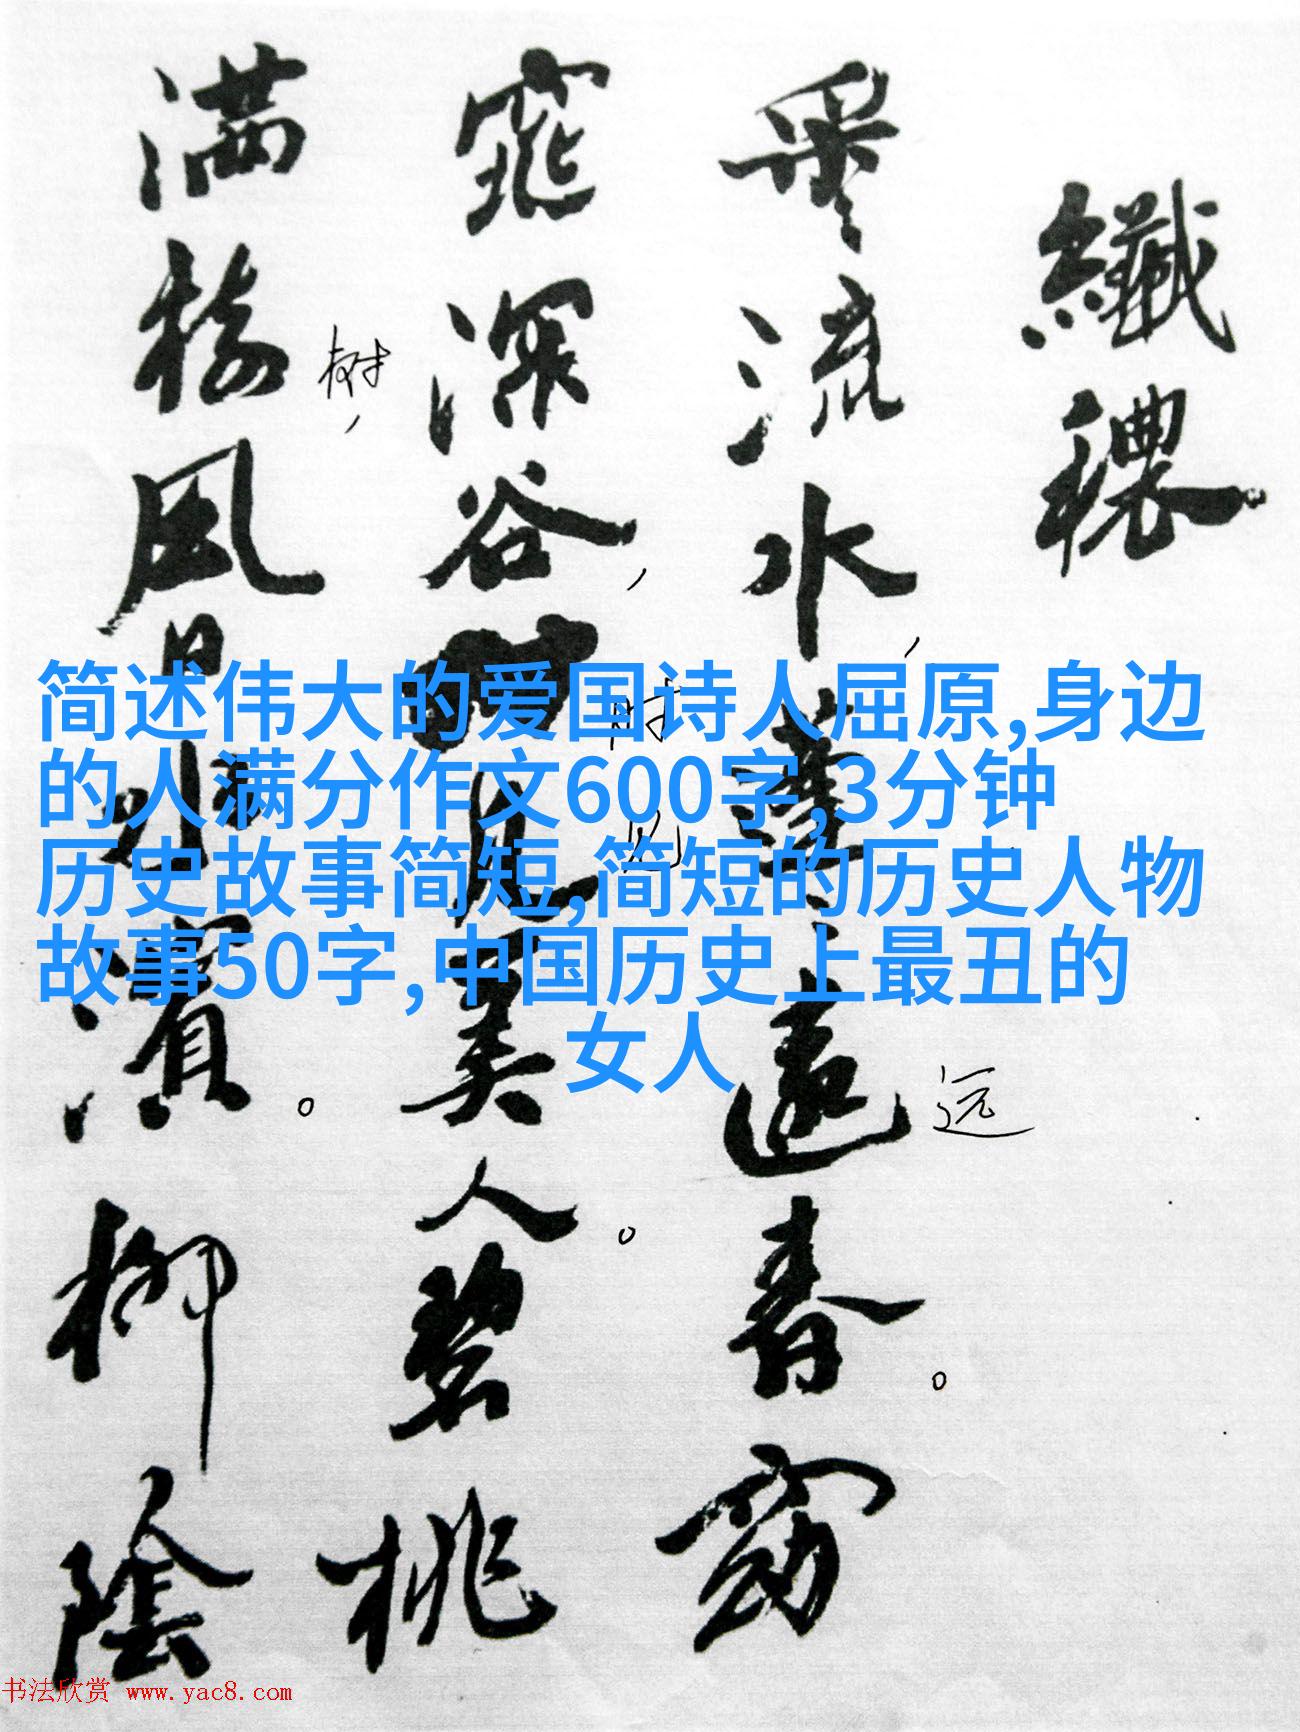 纤秾
采流水,蓬蓬远春。窈
窕深谷,时见美人。碧桃
满树,风日水滨。柳阴
树,
时
见
远
简述伟大的爱国诗人屈原,身边
的人满分作文600字,3分钟
历史故事简短,简短的历史人物
故事50字,中国历史上最丑的
女人
书法欣赏 www.yac8.com